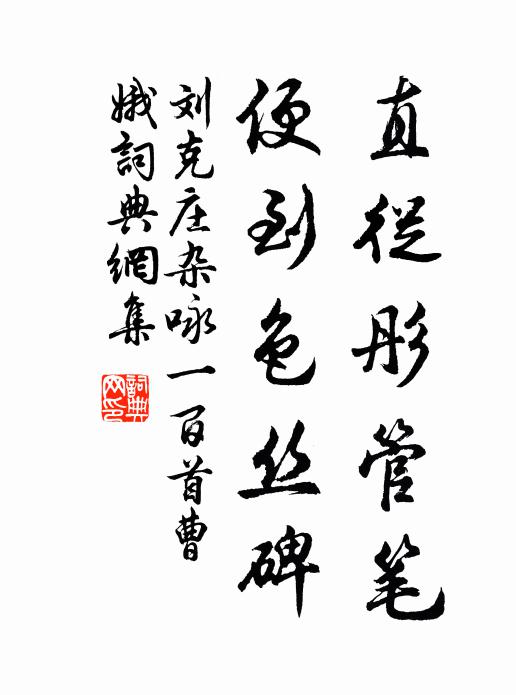 直從彤管笔
便到色丝碑
刘克庄杂咏一百首曹
娥詞典網集
詞典网印